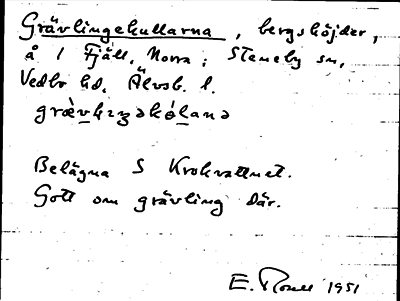 Grävlingekullarna, bergshöjder,
å 1 Fjäll, Norra; Steneby sn,
Vedbo hd, Älvsb. l.
Belägna S Krokvattnet.
Gott om grävling där.
E. 1951